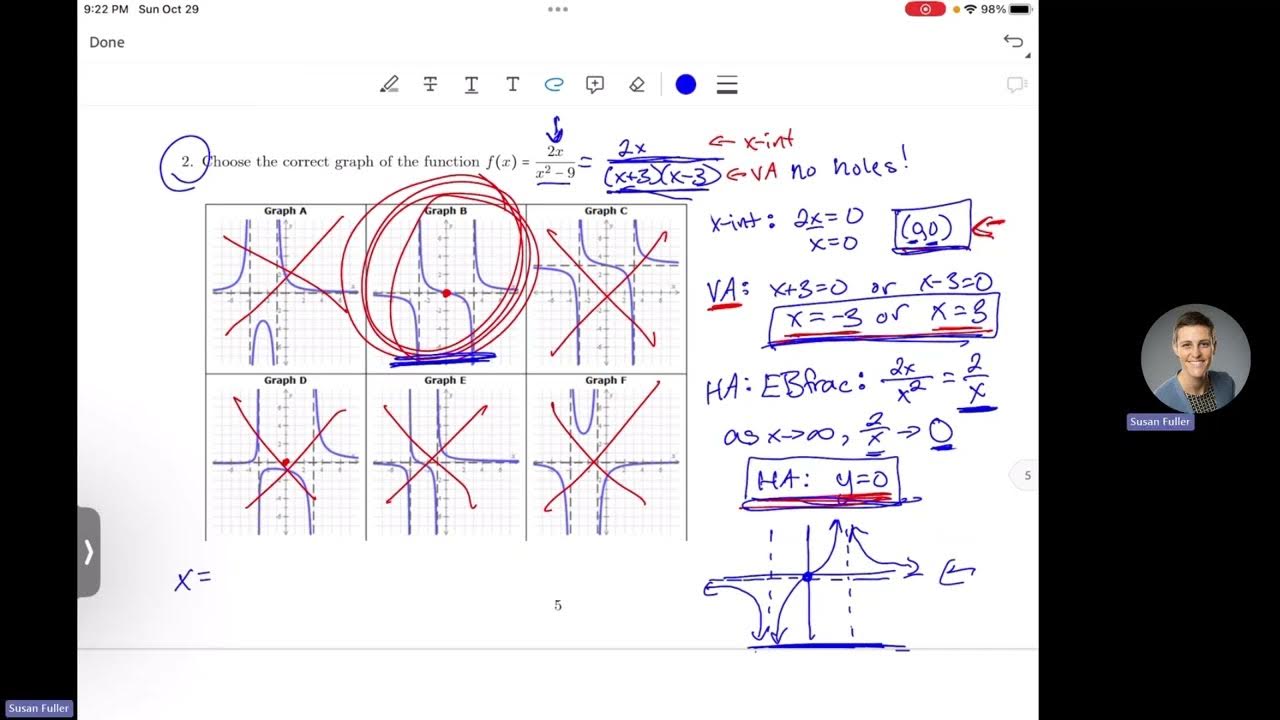 9:22 PM Sun Oct 29
98%
Done
T T T
2. Choose the correct graph of the function f(x) = 2x/(x² − 9) = 2x/((x+3)(x-3))
← x-int
← VA no holes!
Graph A Graph B Graph C
Graph D Graph E Graph F
x-int: 2x = 0
x = 0
(0,0)
VA: x+3=0 or x-3=0
x=-3 or x=3
HA: EBfrac: 2x/x² = 2/x
as x→∞, 2/x → 0
HA: y=0
x=
5
5
Susan Fuller
Susan Fuller